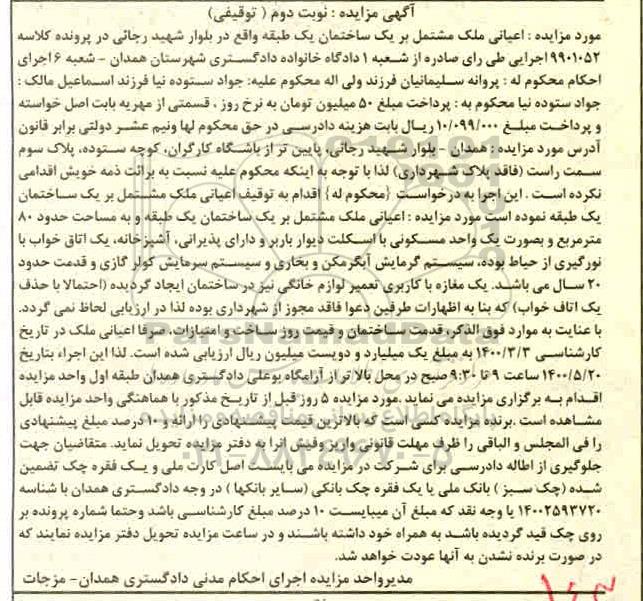 آگهی مزایده : نوبت دوم ( توقیفی)
مورد مزایده : اعیانی ملک مشتمل بر یک ساختمان یک طبقه واقع در بلوار شهید رجائی در پرونده کلاسه
۹۹۰۱۰۵۲ اجرایی طی رای صادره از شعبه ۱ دادگاه خانواده دادگستری شهرستان همدان - شعبه ۶ اجرای
احکام محکوم له : پروانه سلیمانیان فرزند ولی اله محکوم علیه: جواد ستوده نیا فرزند اسماعیل مالک :
جواد ستوده نیا محکوم به : پرداخت مبلغ ۵۰ میلیون تومان به نرخ روز ، قسمتی از مهریه بابت اصل خواسته
و پرداخت مبلغ ۱۰/۰۹۹/۰۰۰ ریال بابت هزینه دادرسی در حق محکوم لها ونیم عشر دولتی برابر قانون
آدرس مورد مزایده : همدان - بلوار شهید رجائی، پایین تر از باشگاه کارگران، کوچه ستوده، پلاک سوم
سمت راست (فاقد پلاک شهرداری) لذا با توجه به اینکه محکوم علیه نسبت به برائت ذمه خویش اقدامی
نکرده است . این اجرا به درخواست {محکوم له} اقدام به توقیف اعیانی ملک مشتمل بر یک ساختمان
یک طبقه نموده است مورد مزایده : اعیانی ملک مشتمل بر یک ساختمان یک طبقه و به مساحت حدود ۸۰
مترمربع و بصورت یک واحد مسکونی با اسکلت دیوار باربر و دارای پذیرائی، آشپزخانه، یک اتاق خواب با
نورگیری از حیاط بوده، سیستم گرمایش آبگرمکن و بخاری و سیستم سرمایش کولر گازی و قدمت حدود
۲۰ سال می باشد. یک مغازه با کاربری تعمیر لوازم خانگی نیز در ساختمان ایجاد گردیده (احتمالا با حذف
یک اتاف خواب) که بنا به اظهارات طرفین دعوا فاقد مجوز از شهرداری بوده لذا در ارزیابی لحاظ نمی گردد.
با عنایت به موارد فوق الذکر، قدمت ساختمان و قیمت روز ساخت و امتیازات، صرفا اعیانی ملک در تاریخ
کارشناسی ۱۴۰۰/۳/۳ به مبلغ یک میلیارد و دویست میلیون ریال ارزیابی شده است. لذا این اجراء بتاریخ
۱۴۰۰/۵/۲۰ ساعت ۹ تا ۹:۳۰ صبح در محل بالا تر از آرامگاه بوعلی دادگستری همدان طبقه اول واحد مزایده
اقدام به برگزاری مزایده می نماید .مورد مزایده ۵ روز قبل از تاریخ مذکور با هماهنگی واحد مزایده قابل
مشاهده است .برنده مزایده کسی است که بالاترین قیمت پیشنهادی را ارائه و ۱۰ درصد مبلغ پیشنهادی
را فی المجلس و الباقی را ظرف مهلت قانونی واریز وفیش انرا به دفتر مزایده تحویل نماید. متقاضیان جهت
جلوگیری از اطاله دادرسی برای شرکت در مزایده می بایست اصل کارت ملی و یک فقره چک تضمین
شده (چک سبز ) بانک ملی یا یک فقره چک بانکی (سایر بانکها ) در وجه دادگستری همدان با شناسه
۱۴۰۰۲۵۹۳۷۲۰ یا وجه نقد که مبلغ آن میبایست ۱۰ درصد مبلغ کارشناسی باشد وحتما شماره پرونده بر
روی چک قید گردیده باشد به همراه خود داشته باشند و در ساعت مزایده تحویل دفتر مزایده نمایند که
در صورت برنده نشدن به آنها عودت خواهد شد.
مدیرواحد مزایده اجرای احکام مدنی دادگستری همدان - مزجات